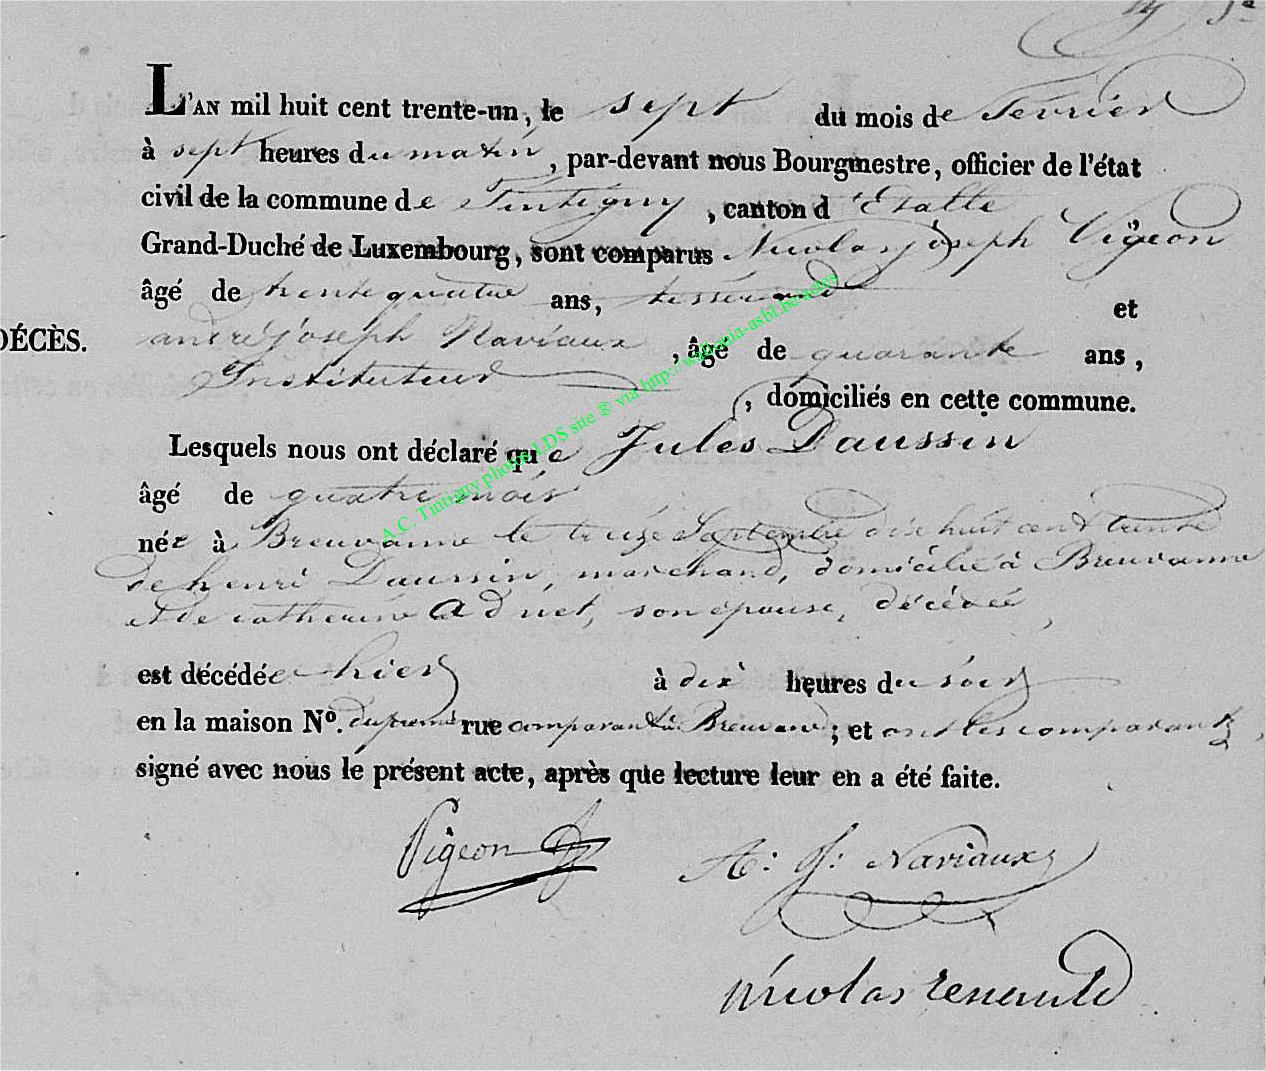 L'AN mil huit cent trente-un, le sept du mois de fevrier
à sept heures du matin, par-devant nous Bourgmestre, officier de l'état
civil de la commune de Tintigny, canton d'Etalle
Grand-Duché de Luxembourg, sont comparus Nicolas joseph Pigeon
âgé de trente quatre ans, tisserand et
DÉCÈS.
andré joseph Naviaux, âgé de quarante ans,
Instituteur, domiciliés en cette commune.
Lesquels nous ont déclaré que Jules Daussin
âgé de quatre mois
née à Breuvanne le treize Septembre dix huit cent trente
de henri Daussin, marchand, domicilié à Breuvanne
et de catherine Adnet, son épouse, décédée,
est décédée hier à dix heures du soir
en la maison N°. du premier rue comparant à Breuvane; et ont les comparants,
signé avec nous le présent acte, après que lecture leur en a été faite.
Pigeon
A: J: Naviaux
Nicolas renauld
A.C. Tintigny photos LDS site ® via http://wallonia-asbl.be/actes